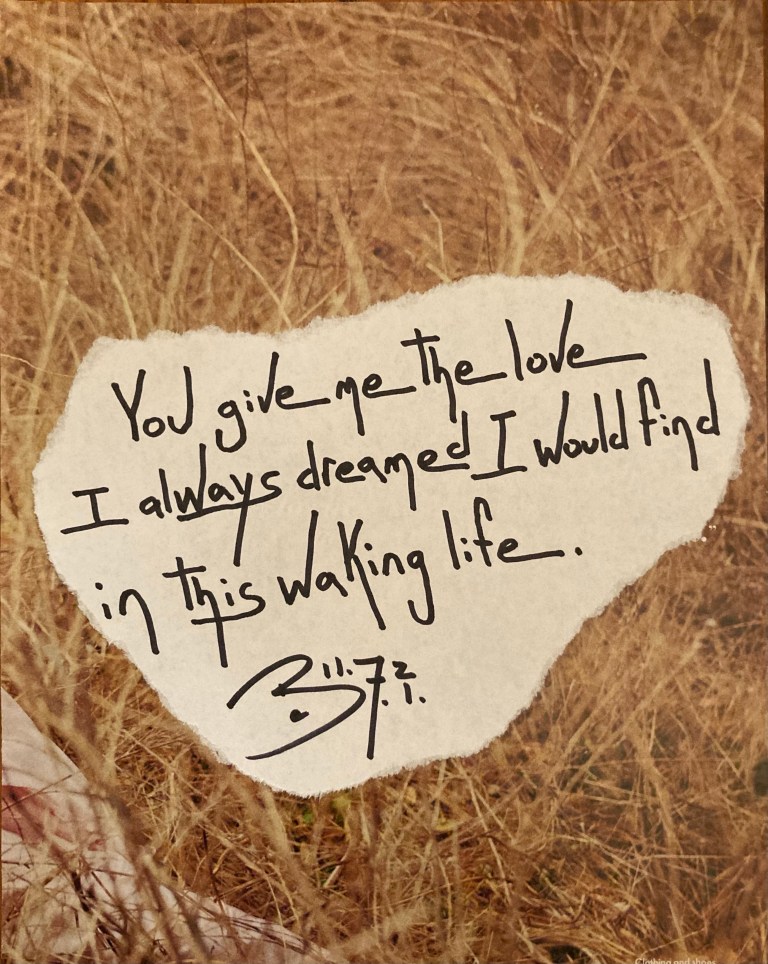 You give me the love
I always dreamed I would find
in this waking life.
Clothing and shoes